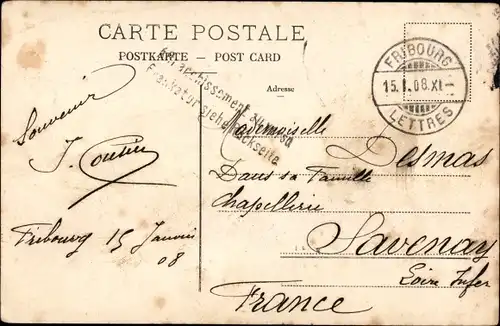 CARTE POSTALE
POSTKARTE — POST CARD
Adresse
Affranchissement au verso
Frankatur siehe Rückseite
FRIBOURG
15. I. 08. XI
LETTRES
Souvenir
Fribourg 15 Janvier
08
Mademoiselle
Desmas
Dans sa Famille
Chapellerie
Savenay
Loire Infer
France